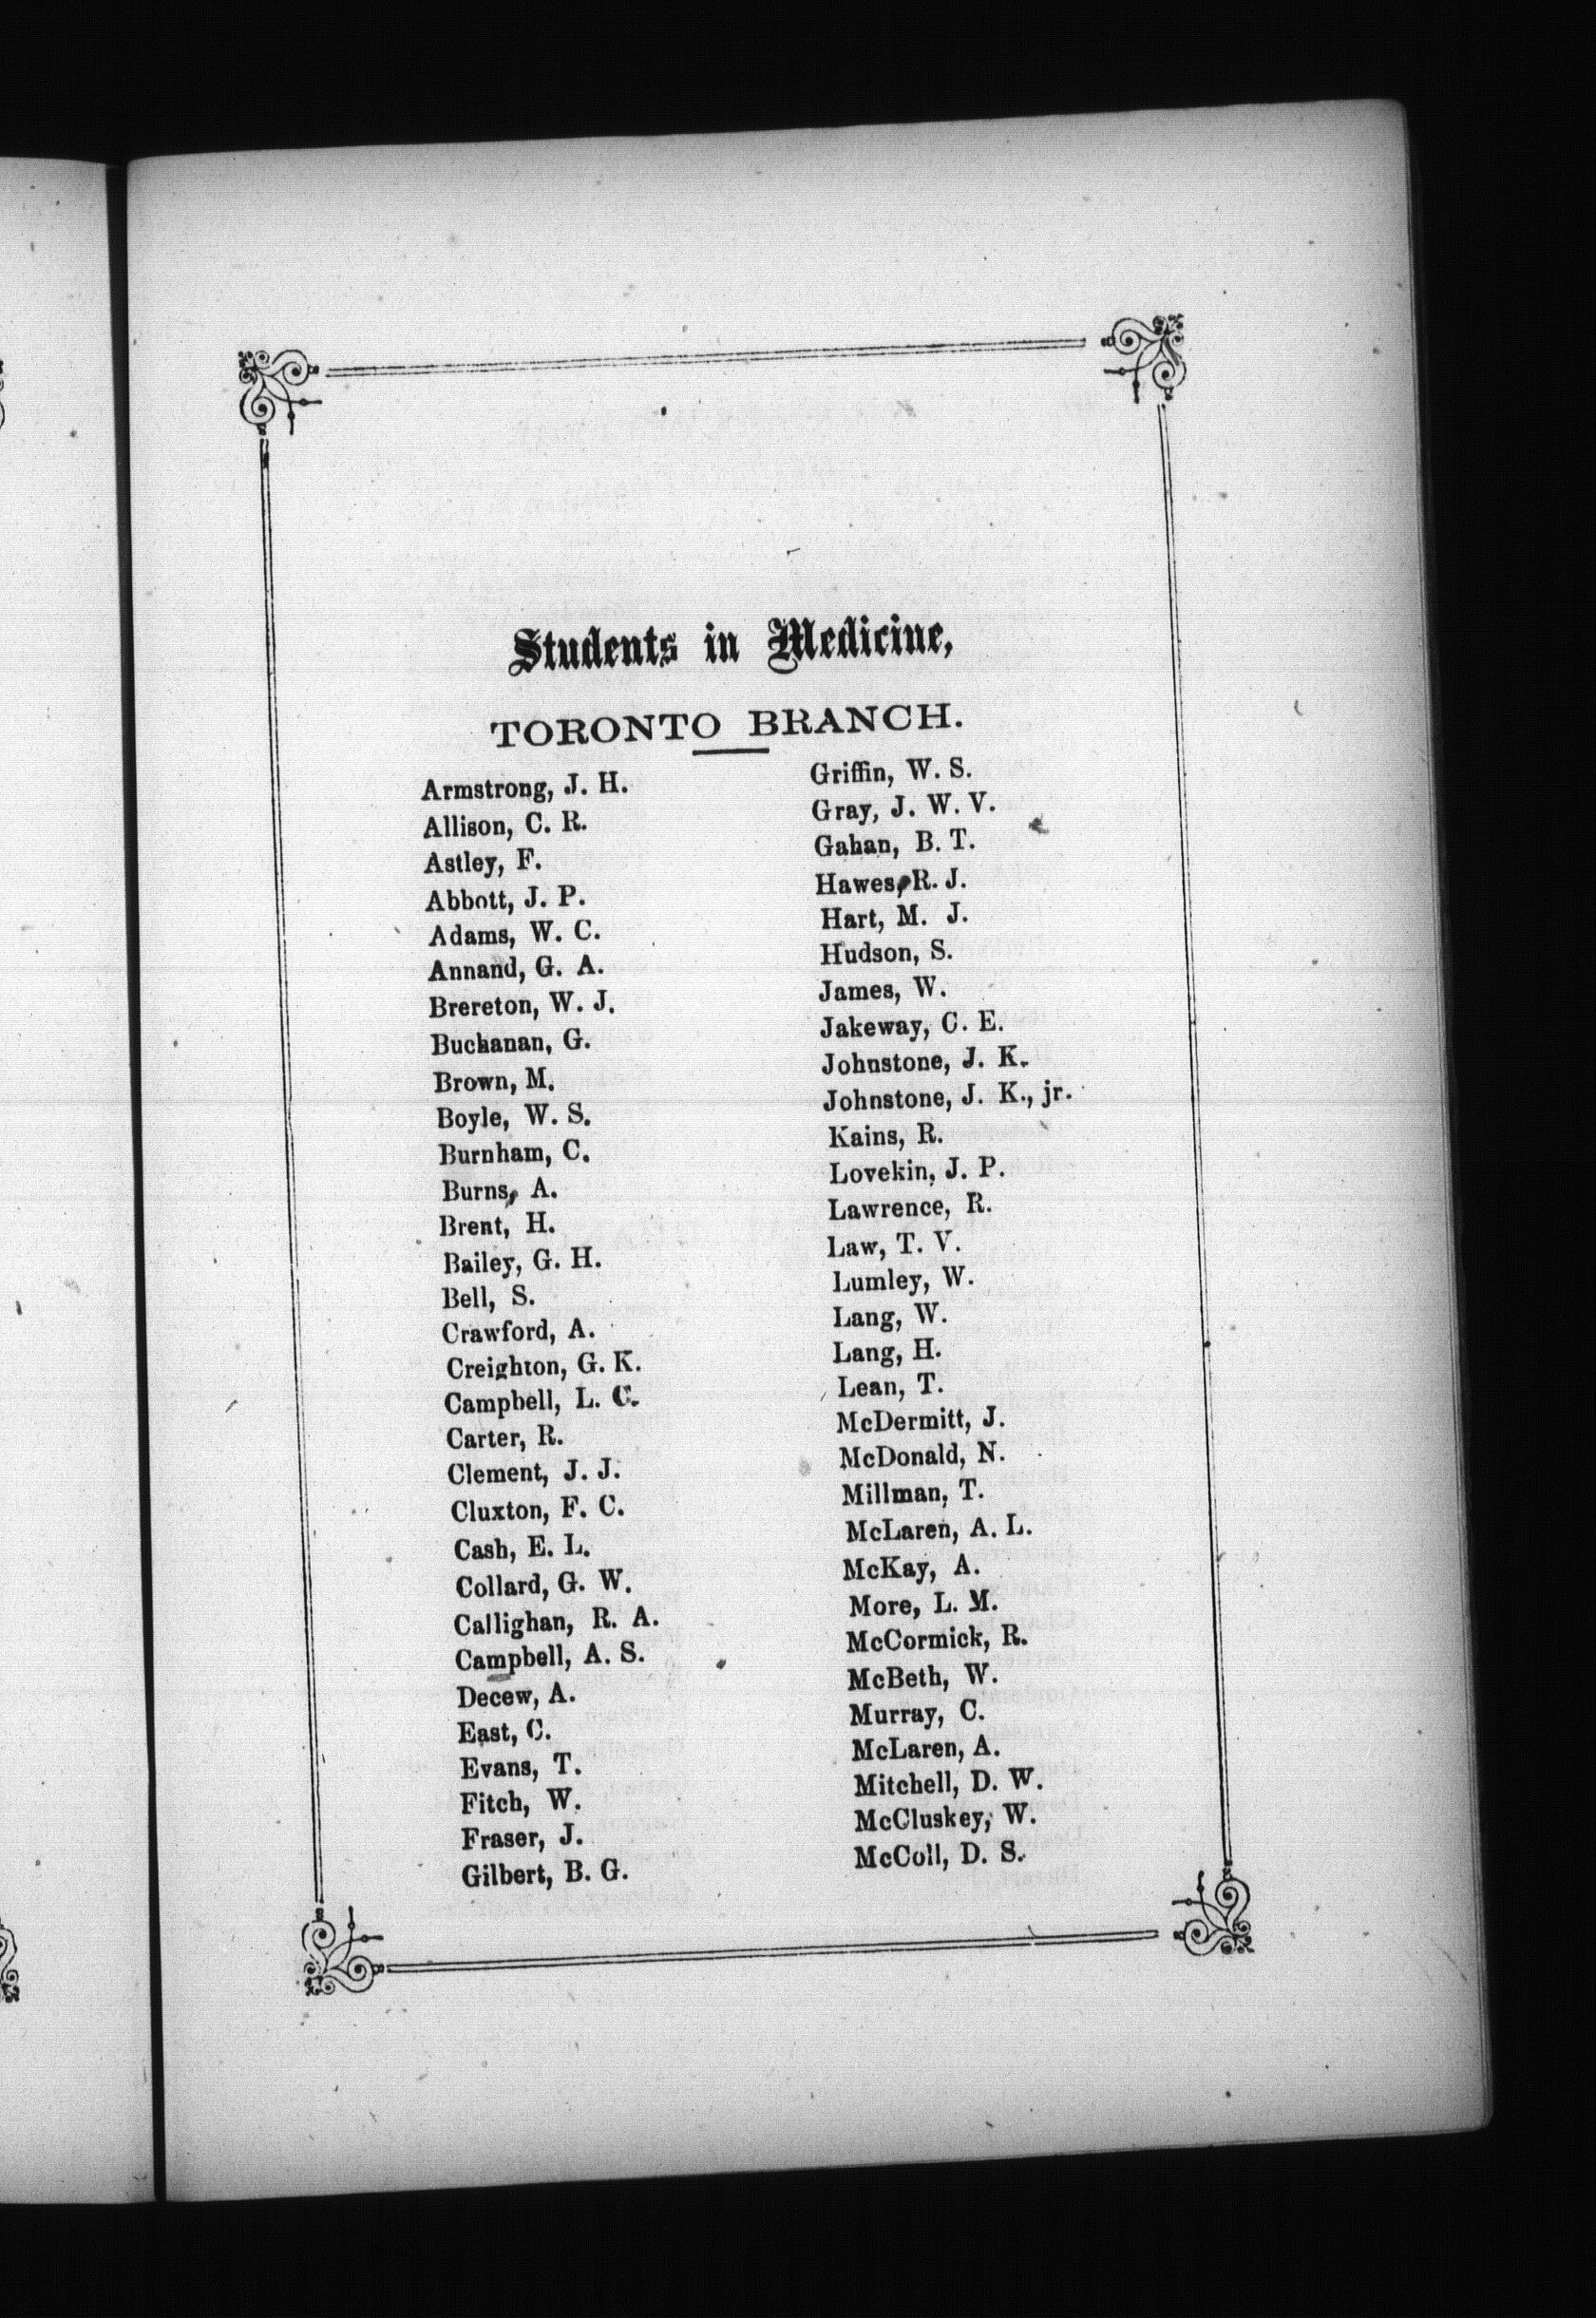 Students in Medicine,
TORONTO BRANCH.
Armstrong, J. H.
Allison, C. R.
Astley, F.
Abbott, J. P.
Adams, W. C.
Annand, G. A.
Brereton, W. J.
Buchanan, G.
Brown, M.
Boyle, W. S.
Burnham, C.
Burns, A.
Brent, H.
Bailey, G. H.
Bell, S.
Crawford, A.
Creighton, G. K.
Campbell, L. C.
Carter, R.
Clement, J. J.
Cluxton, F. C.
Cash, E. L.
Collard, G. W.
Callighan, R. A.
Campbell, A. S.
Decew, A.
East, C.
Evans, T.
Fitch, W.
Fraser, J.
Gilbert, B. G.
Griffin, W. S.
Gray, J. W. V.
Gahan, B. T.
Hawes, R. J.
Hart, M. J.
Hudson, S.
James, W.
Jakeway, C. E.
Johnstone, J. K.
Johnstone, J. K., jr.
Kains, R.
Lovekin, J. P.
Lawrence, R.
Law, T. V.
Lumley, W.
Lang, W.
Lang, H.
Lean, T.
McDermitt, J.
McDonald, N.
Millman, T.
McLaren, A. L.
McKay, A.
More, L. M.
McCormick, R.
McBeth, W.
Murray, C.
McLaren, A.
Mitchell, D. W.
McCluskey, W.
McColl, D. S.